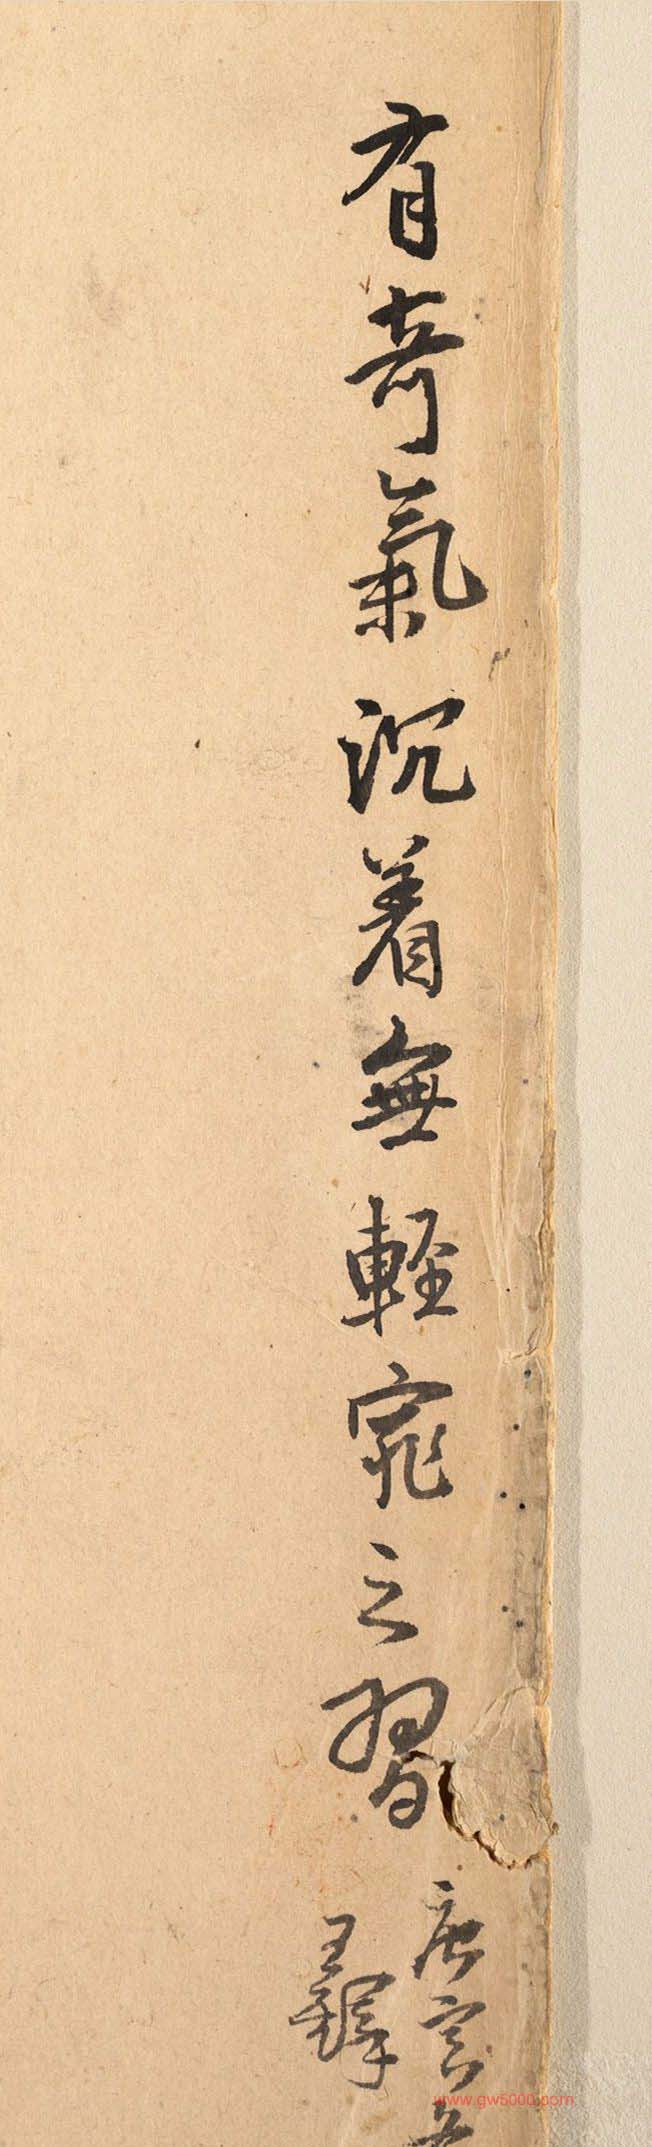 有奇氣沉着無輕窕之習
庚寅
王鐸
www.gw5000.com